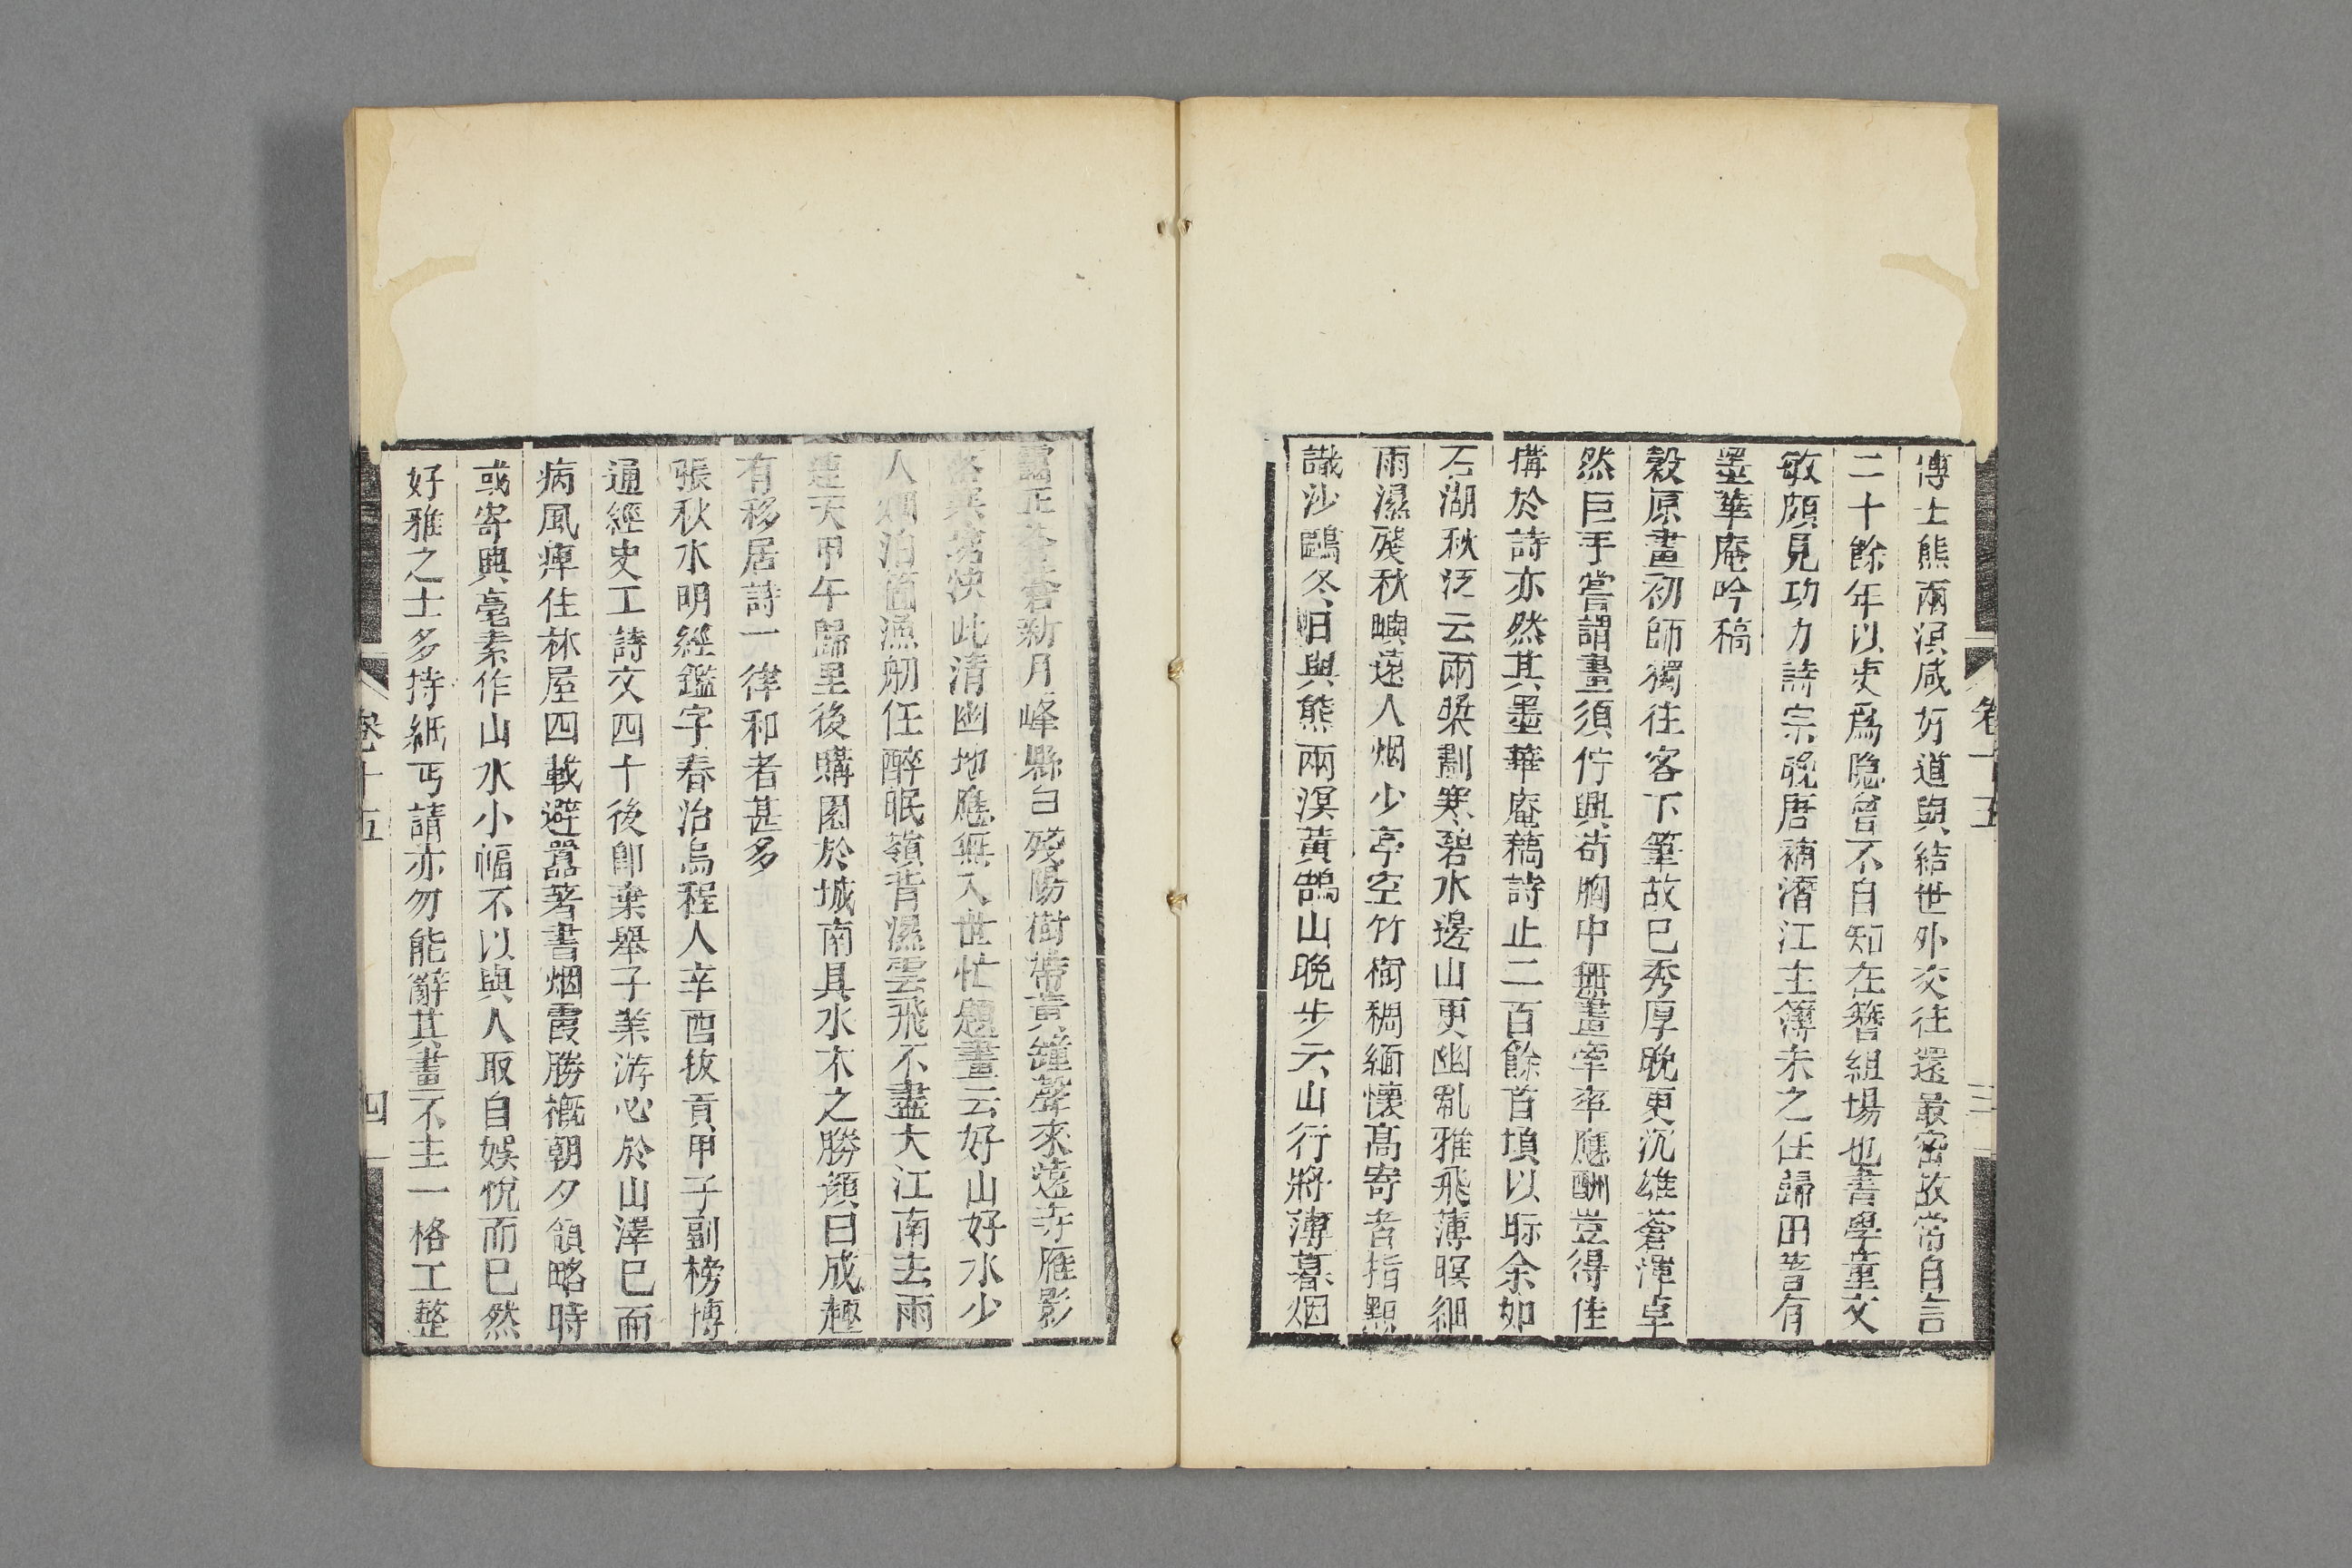 博士熊兩溟咸好道與結世外交往還最密故常自言
二十餘年以吏爲隐曾不自知在簪組場也書學董文
敏頗見功力詩宗晚唐補潛江主簿未之任歸田著有
墨華庵吟稿
穀原畫初師獨往客下筆故已秀厚晚更沉雄蒼渾卓
然巨手嘗謂畫須佇興苟胸中無畫牽率應酬豈得佳
搆於詩亦然其墨華庵稿詩止二百餘首塡以眎余如
石湖秋泛云兩槳劃寒碧水邊山更幽亂雅飛薄暝細
雨濕殘秋嶼遠人烟少亭空竹樹稠緬懷高寄者指點
識沙鷗冬日與熊兩溟黃鵠山晚步云山行將薄暮烟
卷十五
三
靄正蒼蒼新月峰縣白殘陽樹帶黃鐘聲來遠寺雁影
落寒塘快此清幽地應無入世忙題畫云好山好水少
人烟泊箇漁舠任醉眠嶺背濕雲飛不盡大江南去雨
連天甲午歸里後購園於城南具水木之勝顔曰成趣
有移居詩一律和者甚多
張秋水明經鑑字春治烏程人辛酉拔貢甲子副榜博
通經史工詩文四十後卽棄舉子業游心於山澤已而
病風痺住林屋四載避囂著書烟霞勝槪朝夕領略時
或寄興毫素作山水小幅不以與人取自娛悅而已然
好雅之士多持紙丐請亦勿能辭其畫不主一格工整
卷十五
四